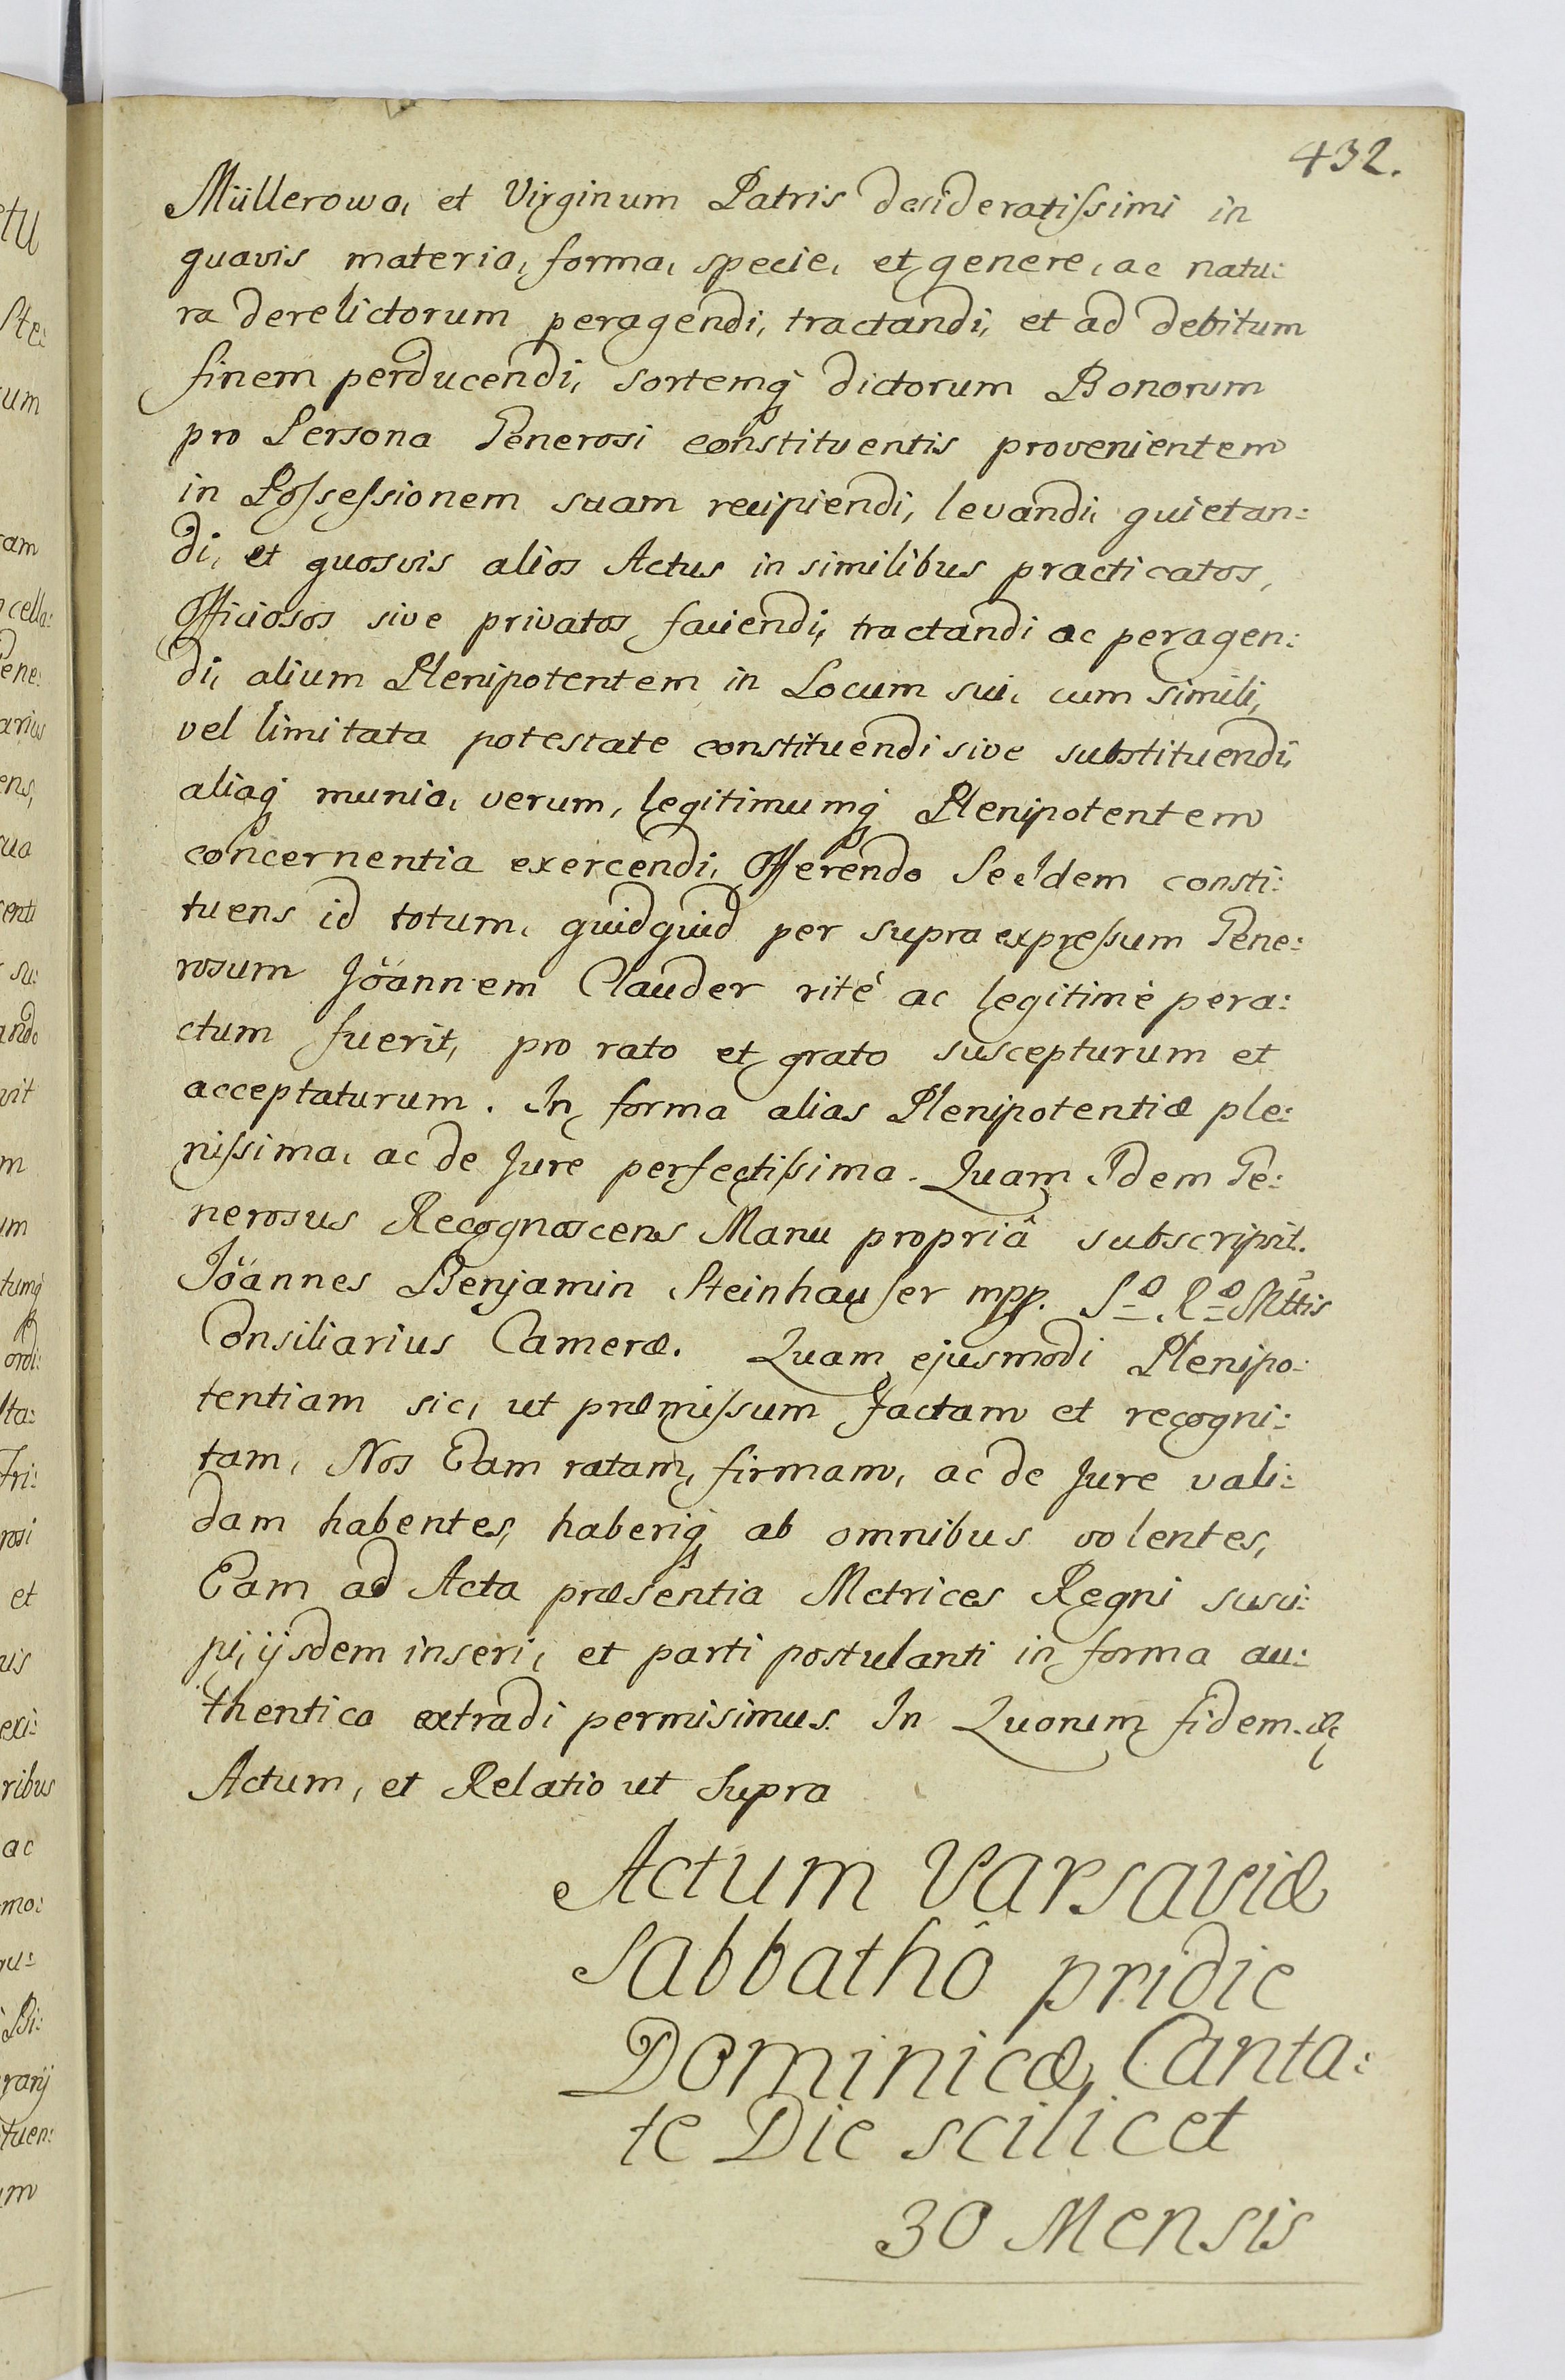 432.
Müllerowa, et Virginum Patris desideratiſsimi in
quavis materia, forma, specie, et genere, ac natu:
ra derelictorum peragendi, tractandi, et ad debitum
finem perducendi, sortemq́ dictorum Bonorum
pro Persona Generosi constituentis provenientem
in Poſseſsionem suam recipiendi, levandi, quietan:
di, et quosvis alios Actus in similibus practicatos,
Officiosos sive privatos faciendi, tractandi ac peragen:
di, alium Plenipotentem in Locum sui, cum simili,
vel limitata potestate constituendi sive substituendi,
aliaq́ munia, verum, legitimumq́ Plenipotentem
concernentia exercendi, Offerendo Se Idem consti:
tuens id totum, quidquid per supra expreſsum Gene:
rosum Jöannem Clauder rité ac legitimè pera:
ctum fuerit, pro rato et grato suscepturum et
acceptaturum. In forma alias Plenipotentiæ ple:
niſsima, ac de Jure perfectiſsima. Quam Idem Ge:
nerosus Recognoscens Manu propriâ subscripsit.
Jöannes Benjamin Steinhauſer mpp. S.æ R.æ Mttis
Consiliarius Cameræ. Quam ejusmodi Plenipo:
tentiam sic, ut præmiſsum factam et recogni:
tam, Nos Eam ratam, firmam, ac de Jure vali:
dam habentes, haberiq́ ab omnibus volentes,
Eam ad Acta præsentia Metrices Regni susci:
pi, ijsdem inseri, et parti postulanti in forma au:
thentica extradi permisimus. In Quorum fidem. &c
Actum, et Relatio ut Supra
Actum Varsaviæ
Sabbathô pridie
Dominicæ Canta:
te Die scilicet
30 Mensis